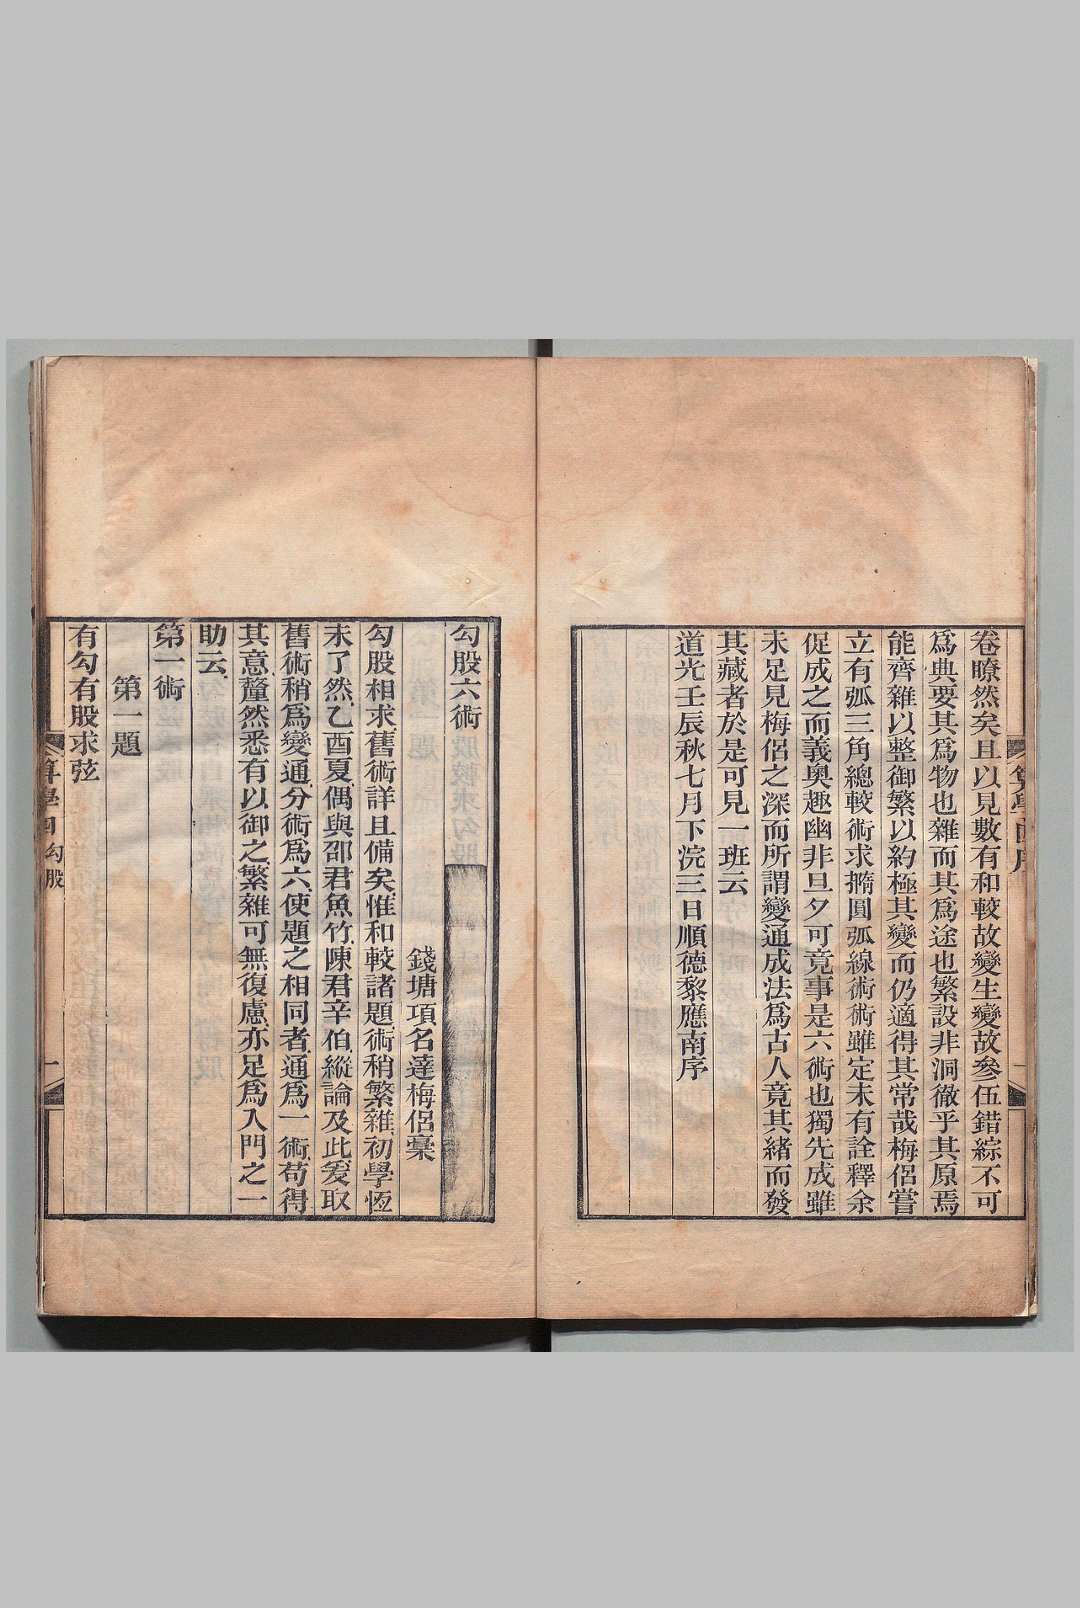 卷瞭然矣且以見數有和較故變生變故參伍錯綜不可
爲典要其爲物也雜而其爲途也繁設非洞徹乎其原焉
能齊雜以整御繁以約極其變而仍適得其常哉梅侶嘗
立有弧三角總較術求橢圓弧線術術雖定未有詮釋余
促成之而義奧趣幽非旦夕可竟事是六術也獨先成雖
未足見梅侶之深而所謂變通成法爲古人竟其緒而發
其藏者於是可見一班云
道光壬辰秋七月下浣三日順德黎應南序
勾股六術
錢塘項名達梅侶橐
勾股相求舊術詳且備矣惟和較諸題術稍繁雜初學恆
未了然乙酉夏偶與邵君魚竹陳君辛伯縱論及此爰取
舊術稍爲變通分術爲六使題之相同者通爲一術苟得
其意釐然悉有以御之繁雜可無復慮亦足爲入門之一
助云
第一術
第一題
有勾有股求弦
勾股
一